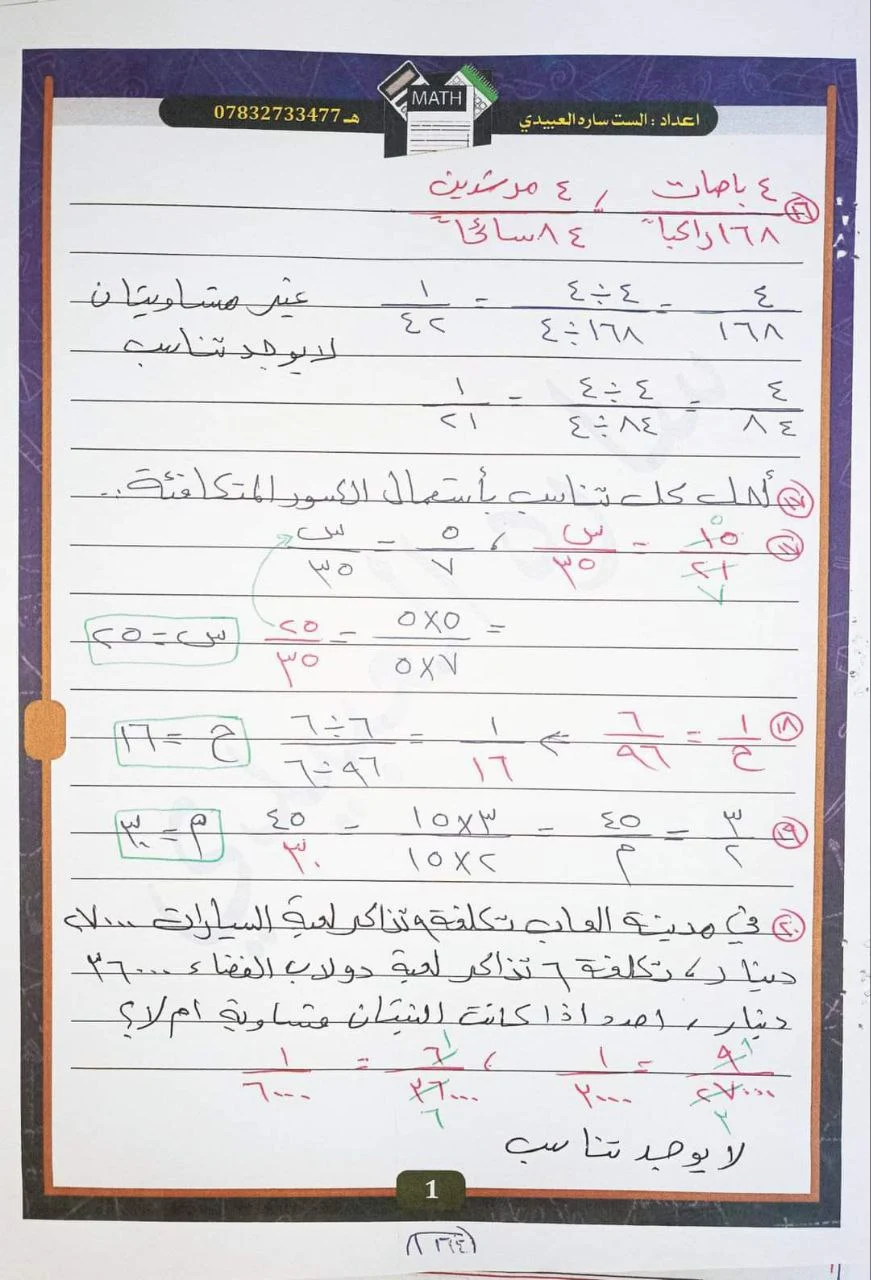 MATH
اعداد : الست ساره العبيدي
هـ 07832733477
١٦ ٤ باصات / ١٦٨ راكباً ، ٤ مرشدين / ٨٤ سائحاً
٤/١٦٨ = ٤÷٤/١٦٨÷٤ = ١/٤٢ غير متساويتان
لا يوجد تناسب
٤/٨٤ = ٤÷٤/٨٤÷٤ = ١/٢١
أحل كل تناسب بأستعمال الكسور المتكافئة..
١٧ ١٥/٢١ = س/٣٥ ، ٥/٧ = س/٣٥
٥ ٧
= ٥×٥/٧×٥ = ٢٥/٣٥ س = ٢٥
١٨ ١/ح = ٦/٩٦ ⇐ ١/١٦ = ٦÷٦/٩٦÷٦ ح = ١٦
١٩ ٣/٢ = ٤٥/م = ٣×١٥/٢×١٥ = ٤٥/٣٠ م = ٣٠
٢٠ في مدينة العاب تكلفة ٩ تذاكر لعبة السيارات ٢٧٠٠٠
دينار، تكلفة ٦ تذاكر لعبة دولاب الفضاء ٣٦٠٠٠
دينار، احدد اذا كانت النسبتان متساوية ام لا؟
٩/٢٧٠٠٠ = ١/٣٠٠٠ ، ٦/٣٦٠٠٠ = ١/٦٠٠٠
١ ٣ ١ ٦
لا يوجد تناسب
1